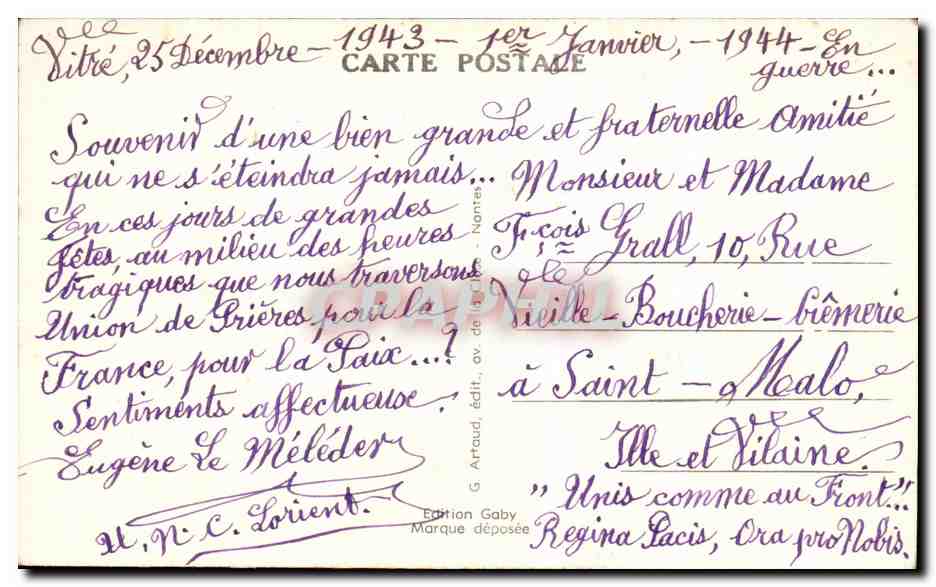 Vitré, 25 Décembre - 1943 - 1er Janvier, - 1944 - En
guerre...
CARTE POSTALE
Souvenir d'une bien grande et fraternelle Amitié
qui ne s'éteindra jamais...
En ces jours de grandes
fêtes, au milieu des heures
tragiques que nous traversons
Union de Prières, pour la
France, pour la Paix...!
Sentiments affectueux.
Eugène Le Méléder
U. N. C. Lorient.
G. Artaud, édit., av. de la Close - Nantes
Edition Gaby
Marque déposée
Monsieur et Madame
Fçois Grall, 10, Rue
Vieille - Boucherie - bêmerie
à Saint - Malo,
Ille et Vilaine.
"Unis comme au Front"..
Regina Pacis, Ora pro Nobis.